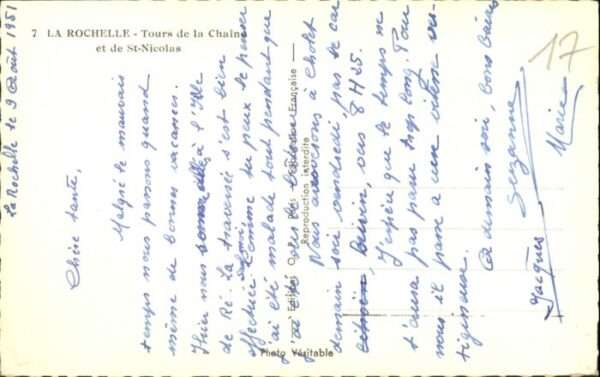 7 LA ROCHELLE - Tours de la Chaîne
et de St-Nicolas
17
La Rochelle le 9 Août 1951
Chère tante,
Malgré le mauvais
temps nous passons quand
même de bonnes vacances.
Hier nous à l'Ile
de Ré. La traversée s'est bien
effectuée. Comme tu peux le penser
j'ai été malade tout pendant que
j'ai été sur le bateau.
Nous arriverons à Cholet
demain soir vendredi, pas le car
, vers 8 H 25.
J'espère que le temps ne
t'aura pas paru trop long. Pour
nous il passe à une vitesse ver-
tigineuse.
A demain soir, bons baisers
Suzanne
Jacques
Marie
Editions
Reproduction interdite
Française
Photo Véritable